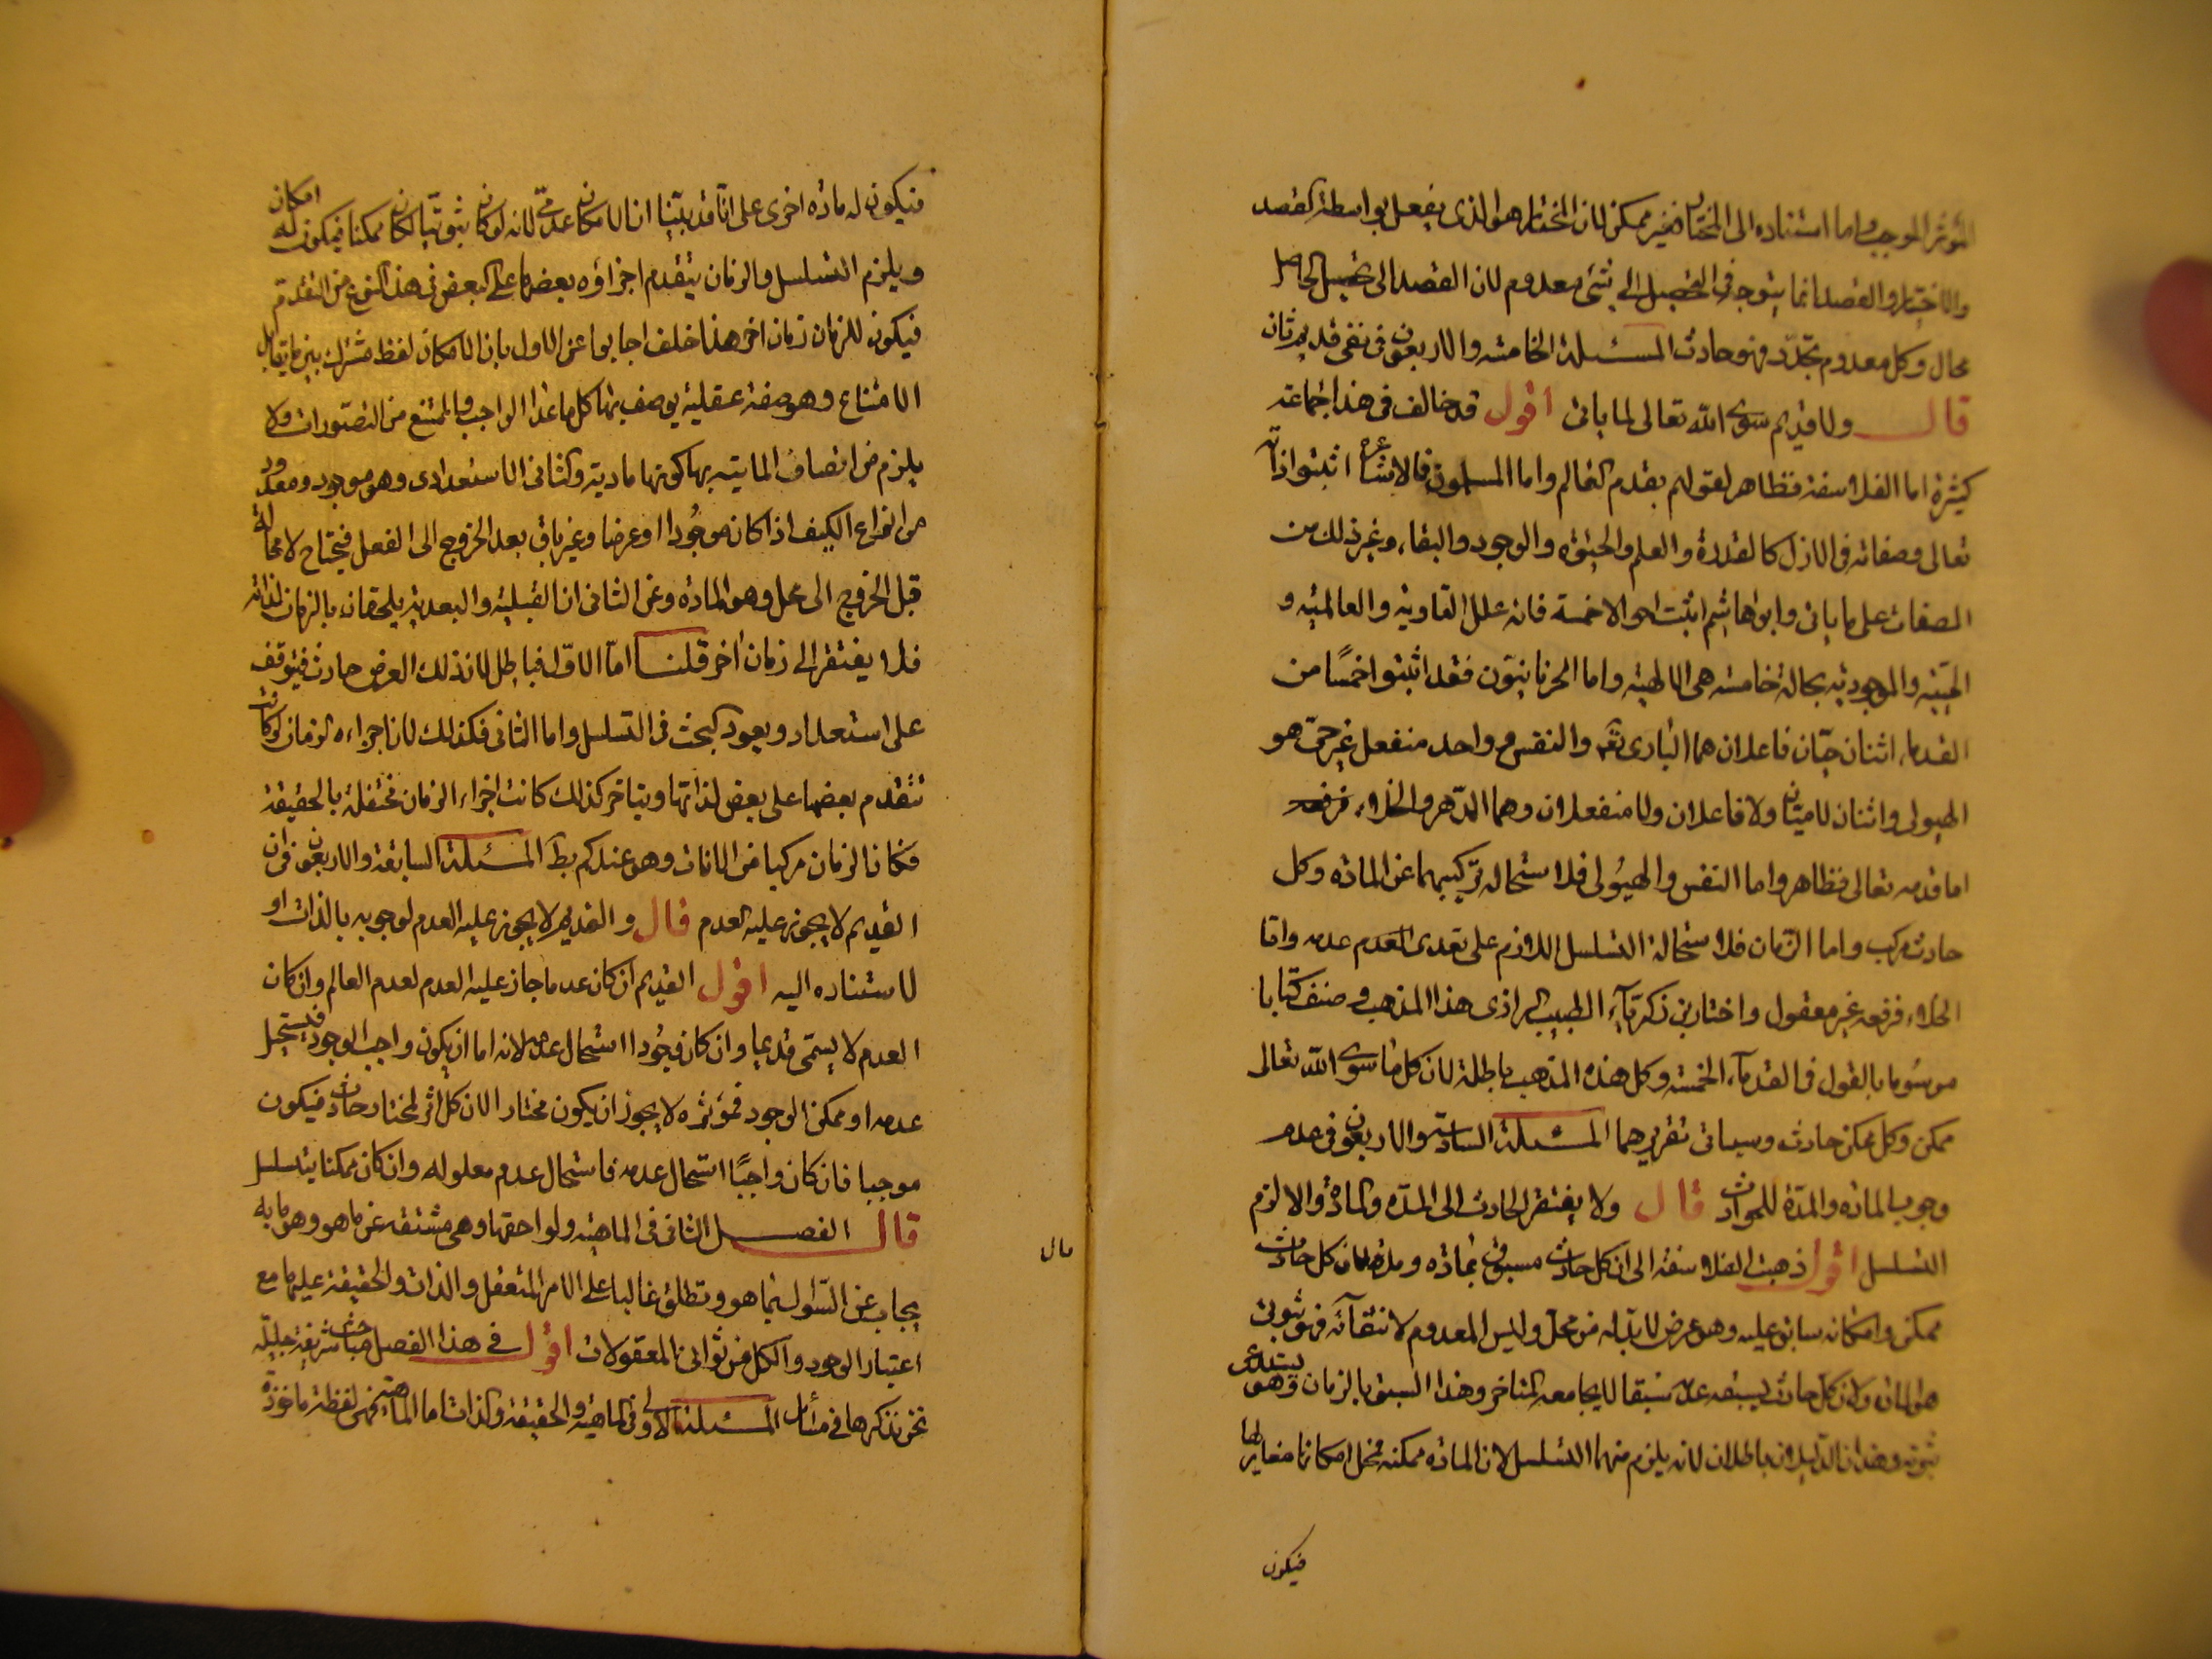 المؤثر الموجب واما استناده الى المختار فغير ممكن لان المختار هو الذى يفعل بواسطة القصد
والاختيار والقصد انما يتوجه فى التحصيل الى شئ معدوم لان القصد الى تحصيل الحاصل
محال وكل معدوم تجدّد فهو حادث المسئلة الخامسة والاربعون فى نفى قديم ثان
قال ولا قديم سوى الله تعالى لما ياتى اقول قد خالف فى هذا جماعة
كثيرة اما الفلاسفة فظاهر لقولهم بقدم العالم واما المسلمون فالاشاعرة اثبتوا ذاته
تعالى وصفاته فى الازل كالقدرة والعلم والحيوة والوجود والبقاء وغير ذلك من
الصفات على ما ياتى وابو هاشم اثبت احوالا خمسة فانه علل القادرية والعالمية و
الحيّية والموجودية بحالة خامسة هى الالهية واما الحرنانيّون فقد اثبتوا خمسًا من
القدماء اثنان حيّان فاعلان هما البارى تعالى والنفس وواحد منفعل غير حىّ هو
الهيولى واثنان لاحيّان ولا فاعلان ولا منفعلان وهما الدّهر والخلاء
اما قدمه تعالى فظاهر واما النفس والهيولى فلاستحالة تركيبهما عن المادة وكل
حادث مركب واما الزمان فلاستحالة التسلسل اللازم على تقدير العدم عدمه واما
الخلاء فرفعه غير معقول واختار بن زكريّاء الطبيب الرازى هذا المذهب وصنف كتابا
موسُوما بالقول فى القدماء الخمسة وكل هذه المذاهب باطلة لان كل ما سوى الله تعالى
ممكن وكل ممكن حادث وسياتى تقريرهما المسئلة السادسة والاربعون فى عدم
وجوب المادة والمدّة للحوادث قال ولا يفتقر الحادث الى المدّة والمادّة والا لزم
التسلسل اقول ذهبت الفلاسفة الى ان كل حادث مسبوق بمادّة ومدة لان كل حادث
ممكن وامكانه سابق عليه وهو عرض لا بدّ له من محلّ وليس المعدوم لانتفائه فهو ثبوتى
هو المادة ولان كل حادث يسبقه عدمه سبقا لا يجامعه المتاخر وهذا السبق بالزمان وهو يستدعى
ثبوته وهذان الدّليلان باطلان لانه يلزم منهما التسلسل لان المادة ممكنة فمحل امكانها مغاير لها
فيكون
فيكون له مادّة اخرى على انّا قد بيّنا ان الامكان عدمى لانه لو كان ثبوتيّا لكان ممكنا فيكون له امكان
ويلزم التسلسل والزمان يتقدم اجزاؤه بعضها على البعض فى هذا النوع من التقدم
فيكون للزمان زمان اخر هذا خلف اجابوا عن الاول بان الامكان لفظ مشترك بين ما يقابل
الامتناع وهو صفة عقلية يوصف بها كل ما عدا الواجب والممتنع من التصورات ولا
يلزم من اتصاف الماهية بها كونها مادية والثانى الاستعدادى وهو موجود ومعدود
من انواع الكيف اذا كان موجُودا وعرضا وغير باق بعد الخروج الى الفعل فيحتاج لا محالة
قبل الخروج الى محل وهو المادّة وعن الثانى ان القبلية والبعدية يلحقان بالزمان لذاته
فلا يفتقر الى زمان اخر قلنا امّا الاوّل فباطل لان ذلك العرض حادث فيتوقف
على استعداد ويعود البحث فى التسلسل واما الثانى فكذلك لان اجزاء الزمان لو كانت
تتقدم بعضها على بعض لذاتها ويتاخر كذلك كانت اجزاء الزمان مختلفة بالحقيقة
فكان الزمان مركبا من الآنات وهو عندكم بط المسئلة السابعة والاربعون فى ان
القديم لا يجوز عليه العدم قال والقديم لا يجوز عليه العدم لوجوبه بالذات او
لاستناده اليه اقول القديم ان كان عدما جاز عليه العدم لعدم العالم وان كان
العدم لا يسمّى قديما وان كان وجُودا استحال عدمه لانه اما ان يكون واجب الوجود فيستحيل
عدمه او ممكن الوجود فمؤثره لا يجوز ان يكون مختارا لان كل اثر لمختار حادث فيكون
موجبا فان كان واجبًا استحال عدمه فاستحال عدم معلوله وان كان ممكنا يتسلسل
قال الفصل الثانى فى الماهية ولواحقها وهى مشتقة عن ما هو وهو ما به
يجاب عن السّؤال بما هو وتطلق غالبا على الامر المتعقل والذات والحقيقة عليها مع
اعتبار الوجود والكل من ثوانى المعقولات اقول فى هذا الفصل مباحث شريفة جليلة
نحن نذكرها فى مسائل المسئلة الاولى فى الماهية والحقيقة والذات اما الماهية فهى لفظة ماخوذة
مال